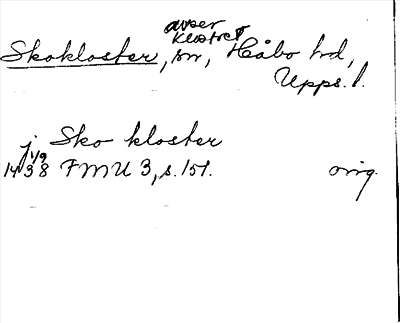 avser
klostret
Skokloster, sn, Håbo hd,
Upps. l.
j Sko kloster
1/9
1438 FMU 3, s. 151. orig.